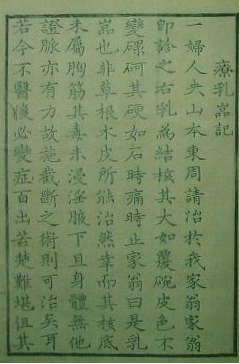 療乳嵓記
一婦人夾山本東周請治於我家翁家翁
即診之右乳為結核其大如覆碗皮色不
變磥砢其硬如石時痛時止家翁曰是乳
嵓也非草根木皮所能治然幸而其核底
未屬胸筋其毒未浸淫腋下且身體無他
證脈亦有力故施截斷之術則可治矣耳
若今不醫後必變症百出苦楚難堪但其